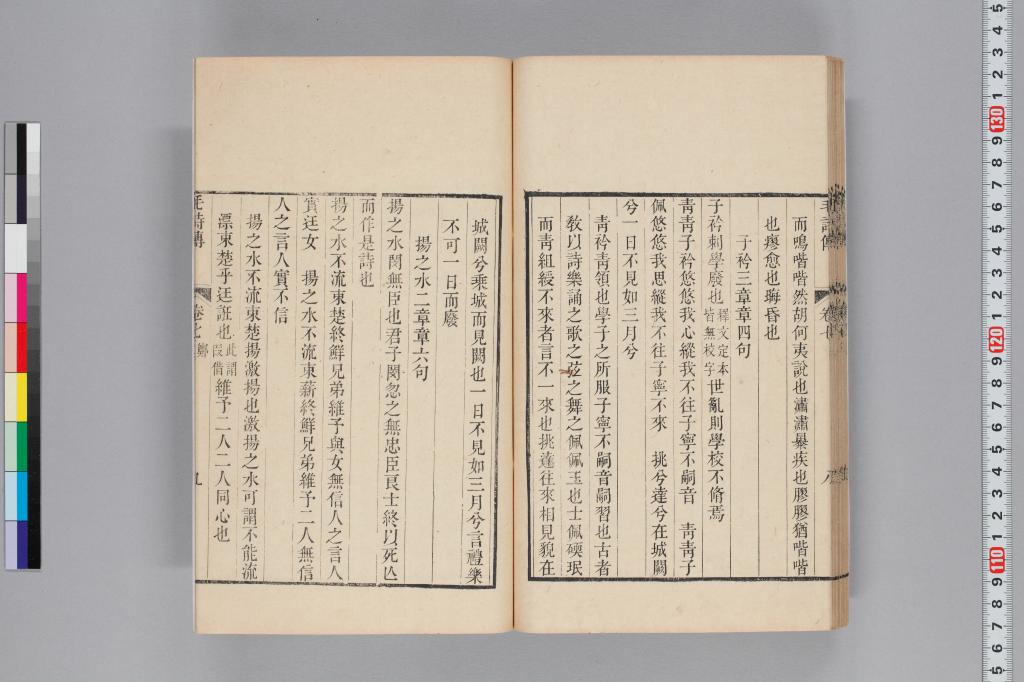 而鳴喈喈然胡何夷說也瀟瀟暴疾也膠膠猶喈喈
也瘳愈也晦昏也
子衿三章章四句
子衿刺學廢也釋文定本皆無校字世亂則學校不脩焉
青青子衿悠悠我心縱我不往子寧不嗣音　青青子
佩悠悠我思縱我不往子寧不來　挑兮達兮在城闕
兮一日不見如三月兮
青衿青領也學子之所服子寧不嗣音嗣習也古者
敎以詩樂誦之歌之弦之舞之佩佩玉也士佩碝珉
而靑組綬不來者言不一來也挑達往來相見貌在
城闕兮乘城而見闕也一日不見如三月兮言禮樂
不可一日而廢
揚之水二章章六句
揚之水閔無臣也君子閔忽之無忠臣良士終以死亾
而作是詩也
揚之水不流束楚終鮮兄弟維予與女無信人之言人
實廷女　揚之水不流束薪終鮮兄弟維予二人無信
人之言人實不信
揚之水不流束楚揚激揚也激揚之水可謂不能流
漂束楚乎廷誑也此謂叚借維予二人二人同心也
毛詩傳
卷七
鄭
九